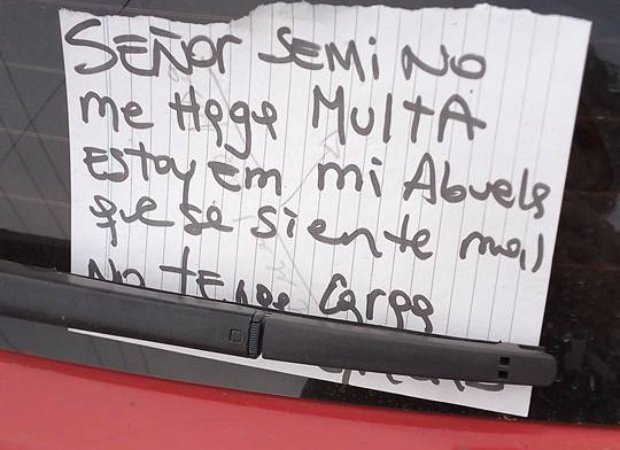 SEÑOR SEMI NO
me Haga MULTA
EStoy Em mi Abuela
que se siente mal
NO tengo Carga